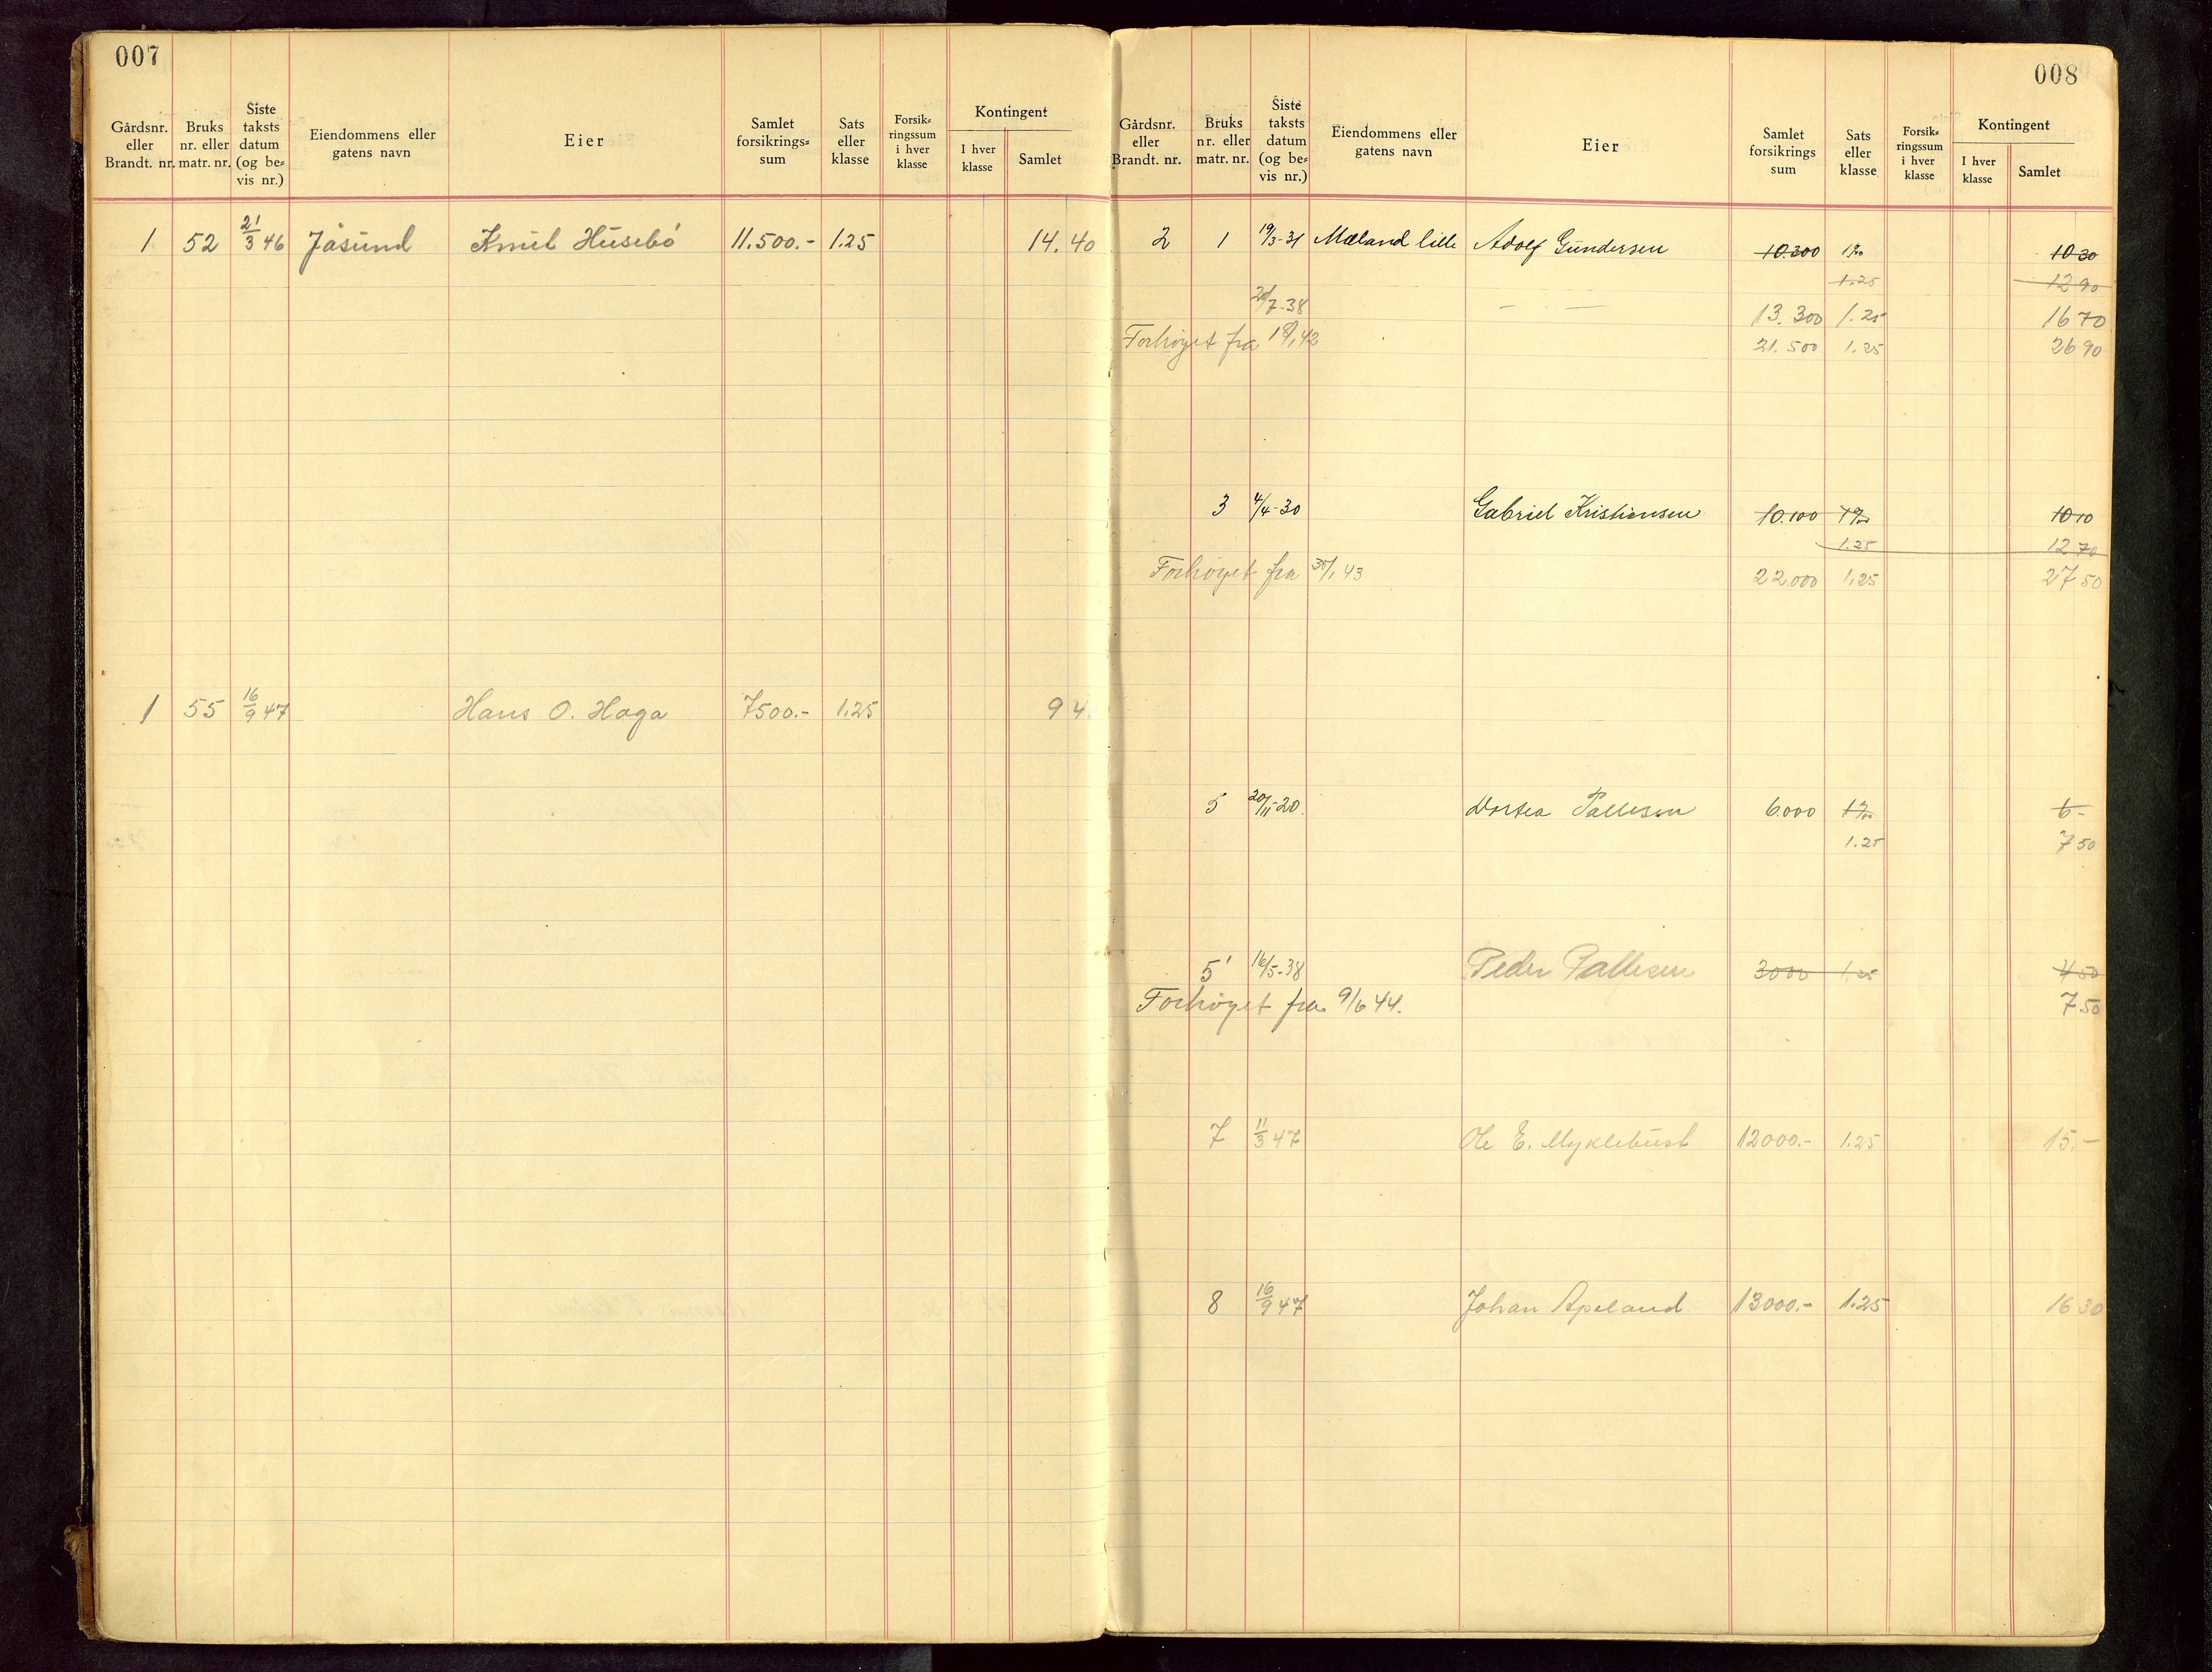 007
Gårdsnr. eller Brandt. nr. Bruks nr. eller matr. nr. Siste taksts datum (og be= vis nr.) Eiendommens eller gatens navn Eier Samlet forsikrings= sum Sats eller klasse Forsik= ringssum i hver klasse Kontingent I hver klasse Samlet
1 52 21/3 46 Jåsund Knut Husebö 11.500.- 1.25 14.40
1 55 16/9 47 Hans O. Haga 7500.- 1.25 94
008
Gårdsnr. eller Brandt. nr. Bruks nr. eller matr. nr. Siste taksts datum (og be= vis nr.) Eiendommens eller gatens navn Eier Samlet forsikrings sum Sats eller klasse Forsik= ringssum i hver klasse Kontingent I hver klasse Samlet
2 1 19/3-31 Mæland lille Adolf Gundersen 10.300 1‰ 10 30
1.25 12 90
20/7-38 — — 13.300 1.25 16 70
Forhöyet fra 42 21.500 1.25 26 90
3 4/4-30 Gabriel Kristiansen 10.100 1‰ 10 10
1.25 12 70
Forhöyet fra 30/1 43 22.000 1.25 27 50
5 20/11-20. Dortea Pallesen 6.000 1‰ 6-
1.25 7 50
5' 16/5-38 Peder Pallesen 3000 1.25 50
Forhöyet fra 9/6 44. 7 50
7 11/3 47 Ole E. Myklebust 12000.- 1.25 15.-
8 16/9 47 Johan Apeland 13000.- 1.25 16 30